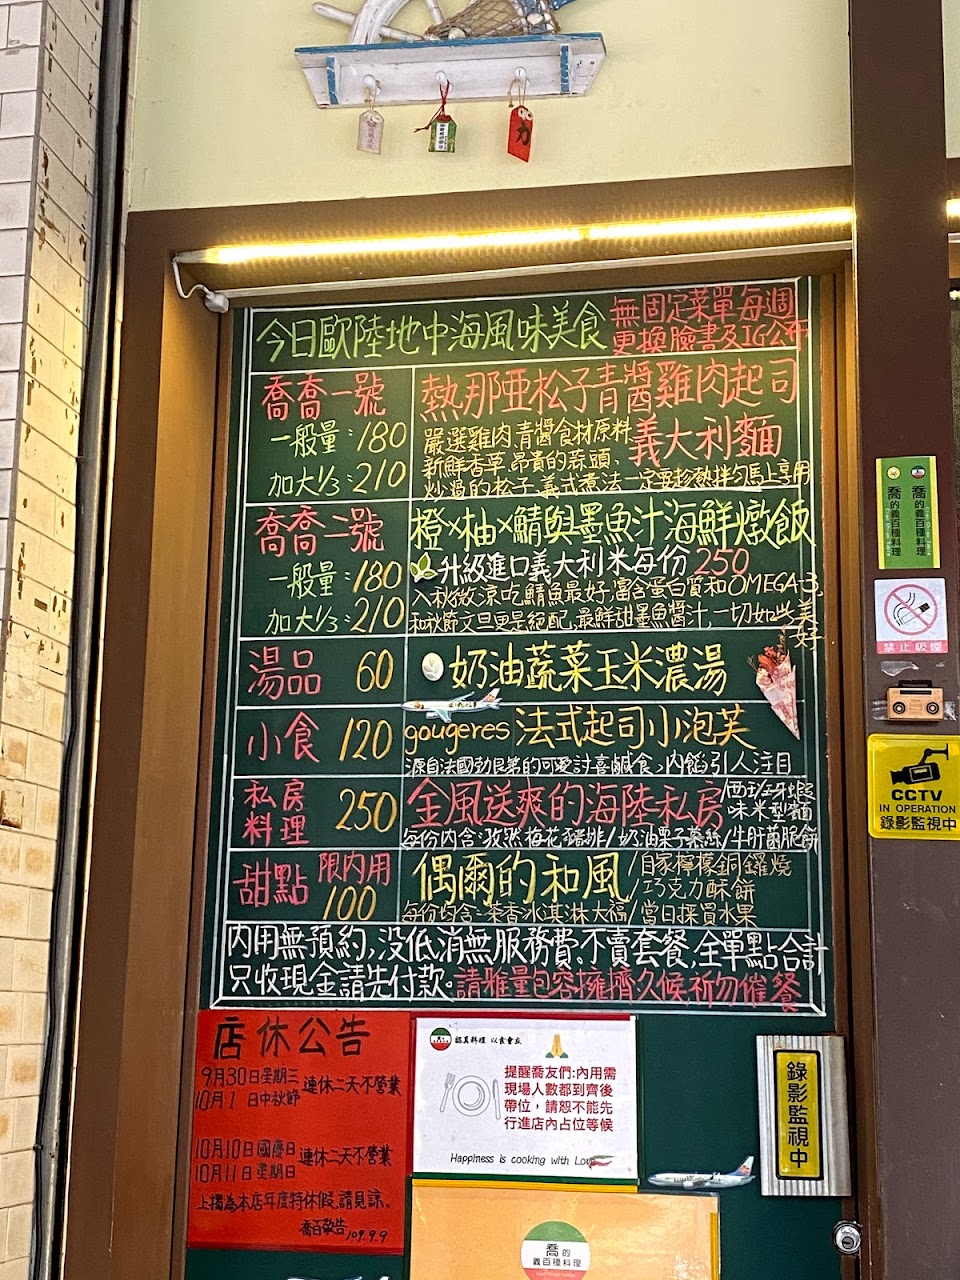 今日歐陸地中海風味美食
無固定菜單每週
更換臉書及IG公佈
喬喬一號
一般量:180
加大1/3:210
熱那亞松子青醬雞肉起司
義大利麵
嚴選雞肉、青醬食材原料
新鮮香草、昂貴的蒜頭、
炒過的松子、義式煮法一定要趁熱拌勻馬上享用
喬喬二號
一般量:180
加大1/3:210
橙×柚×鯖與墨魚汁海鮮燉飯
升級進口義大利米每份250
入秋微涼吃鯖魚最好,富含蛋白質和OMEGA-3,
和秋節文旦更是絕配,最鮮甜墨魚醬汁,一切如此美好
湯品 60
奶油蔬菜玉米濃湯
小食 120
gougeres 法式起司小泡芙
源自法國勃艮第的可愛討喜鹹食,內餡引人注目
私房料理 250
金風送爽的海陸私房
西班牙蝦味米型麵
每份內含:孜然梅花豬排/奶油栗子菜絲/牛肝菌脆餅
甜點 限內用 100
偶爾的和風
/自家檸檬銅鑼燒
/巧克力酥餅
每份均含:茶香冰淇淋大福/當日採買水果
內用無預約,没低消無服務費。不賣套餐,全單點合計
只收現金請先付款。請雅量包容擁擠久候祈勿催餐
店休公告
9月30日星期三
10月1日中秋節
連休二天不營業
10月10日國慶日
10月11日星期日
連休二天不營業
上揭為本店年度特休假,請見諒。
喬百敬告109.9.9
認真料理 以食會友
提醒喬友們:內用需
現場人數都到齊後
帶位,請恕不能先
行進店內占位等候
Happiness is cooking with Love
喬的
義百種料理
喬的義百種料理
喬的義百種料理
禁止吸煙
CCTV
IN OPERATION
錄影監視中
錄影監視中